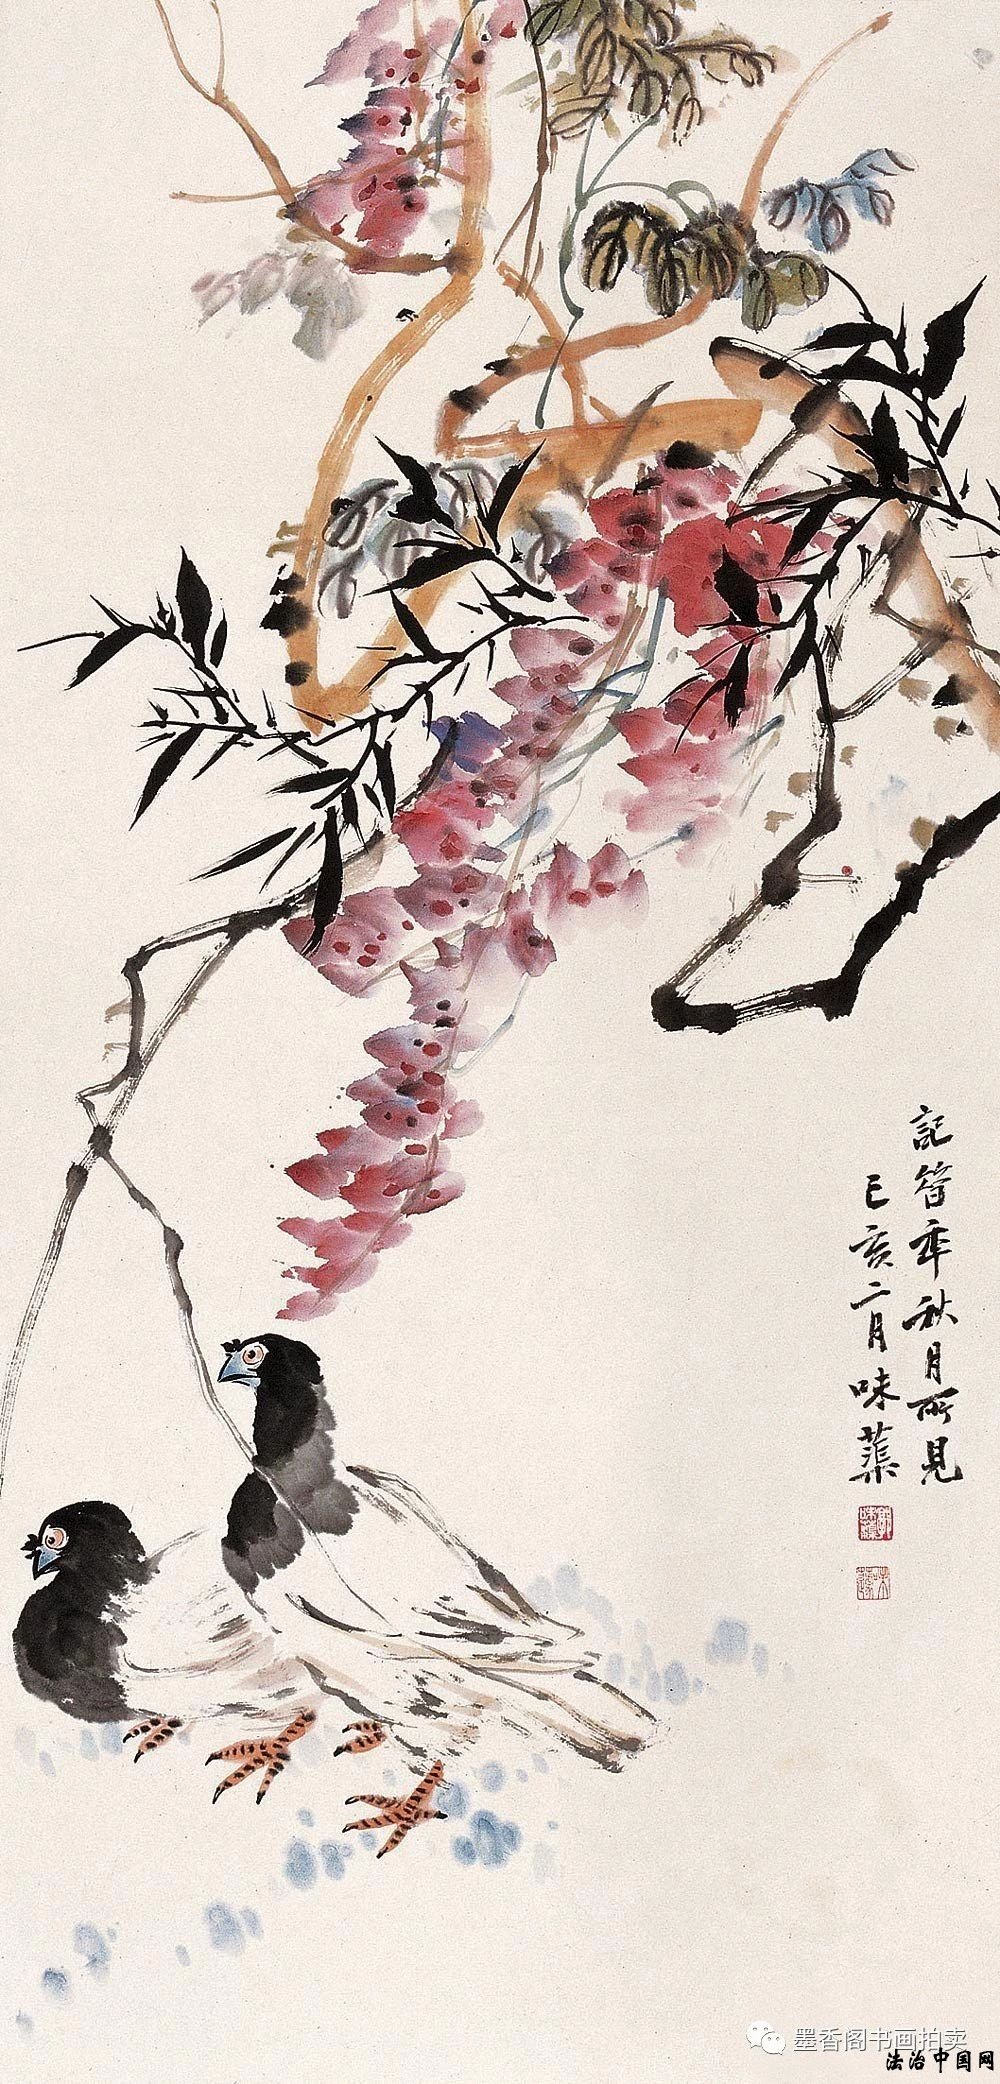 記簷年秋月所見
己亥二月味蕖
墨香阁书画拍卖
法治中国网